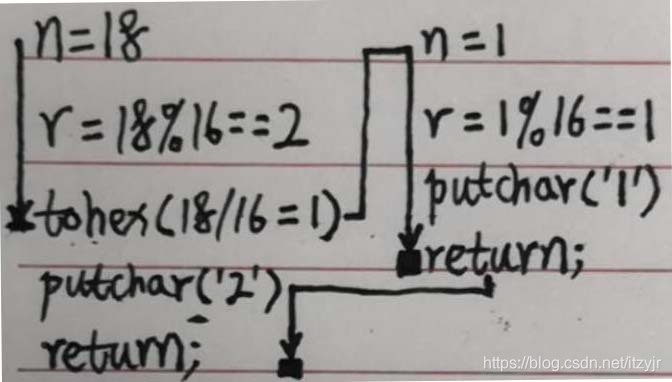 n=18
r=18%16==2
tohex(18/16=1)
putchar('2')
return;
n=1
r=1%16==1
putchar('1')
return;
https://blog.csdn.net/itzyjr